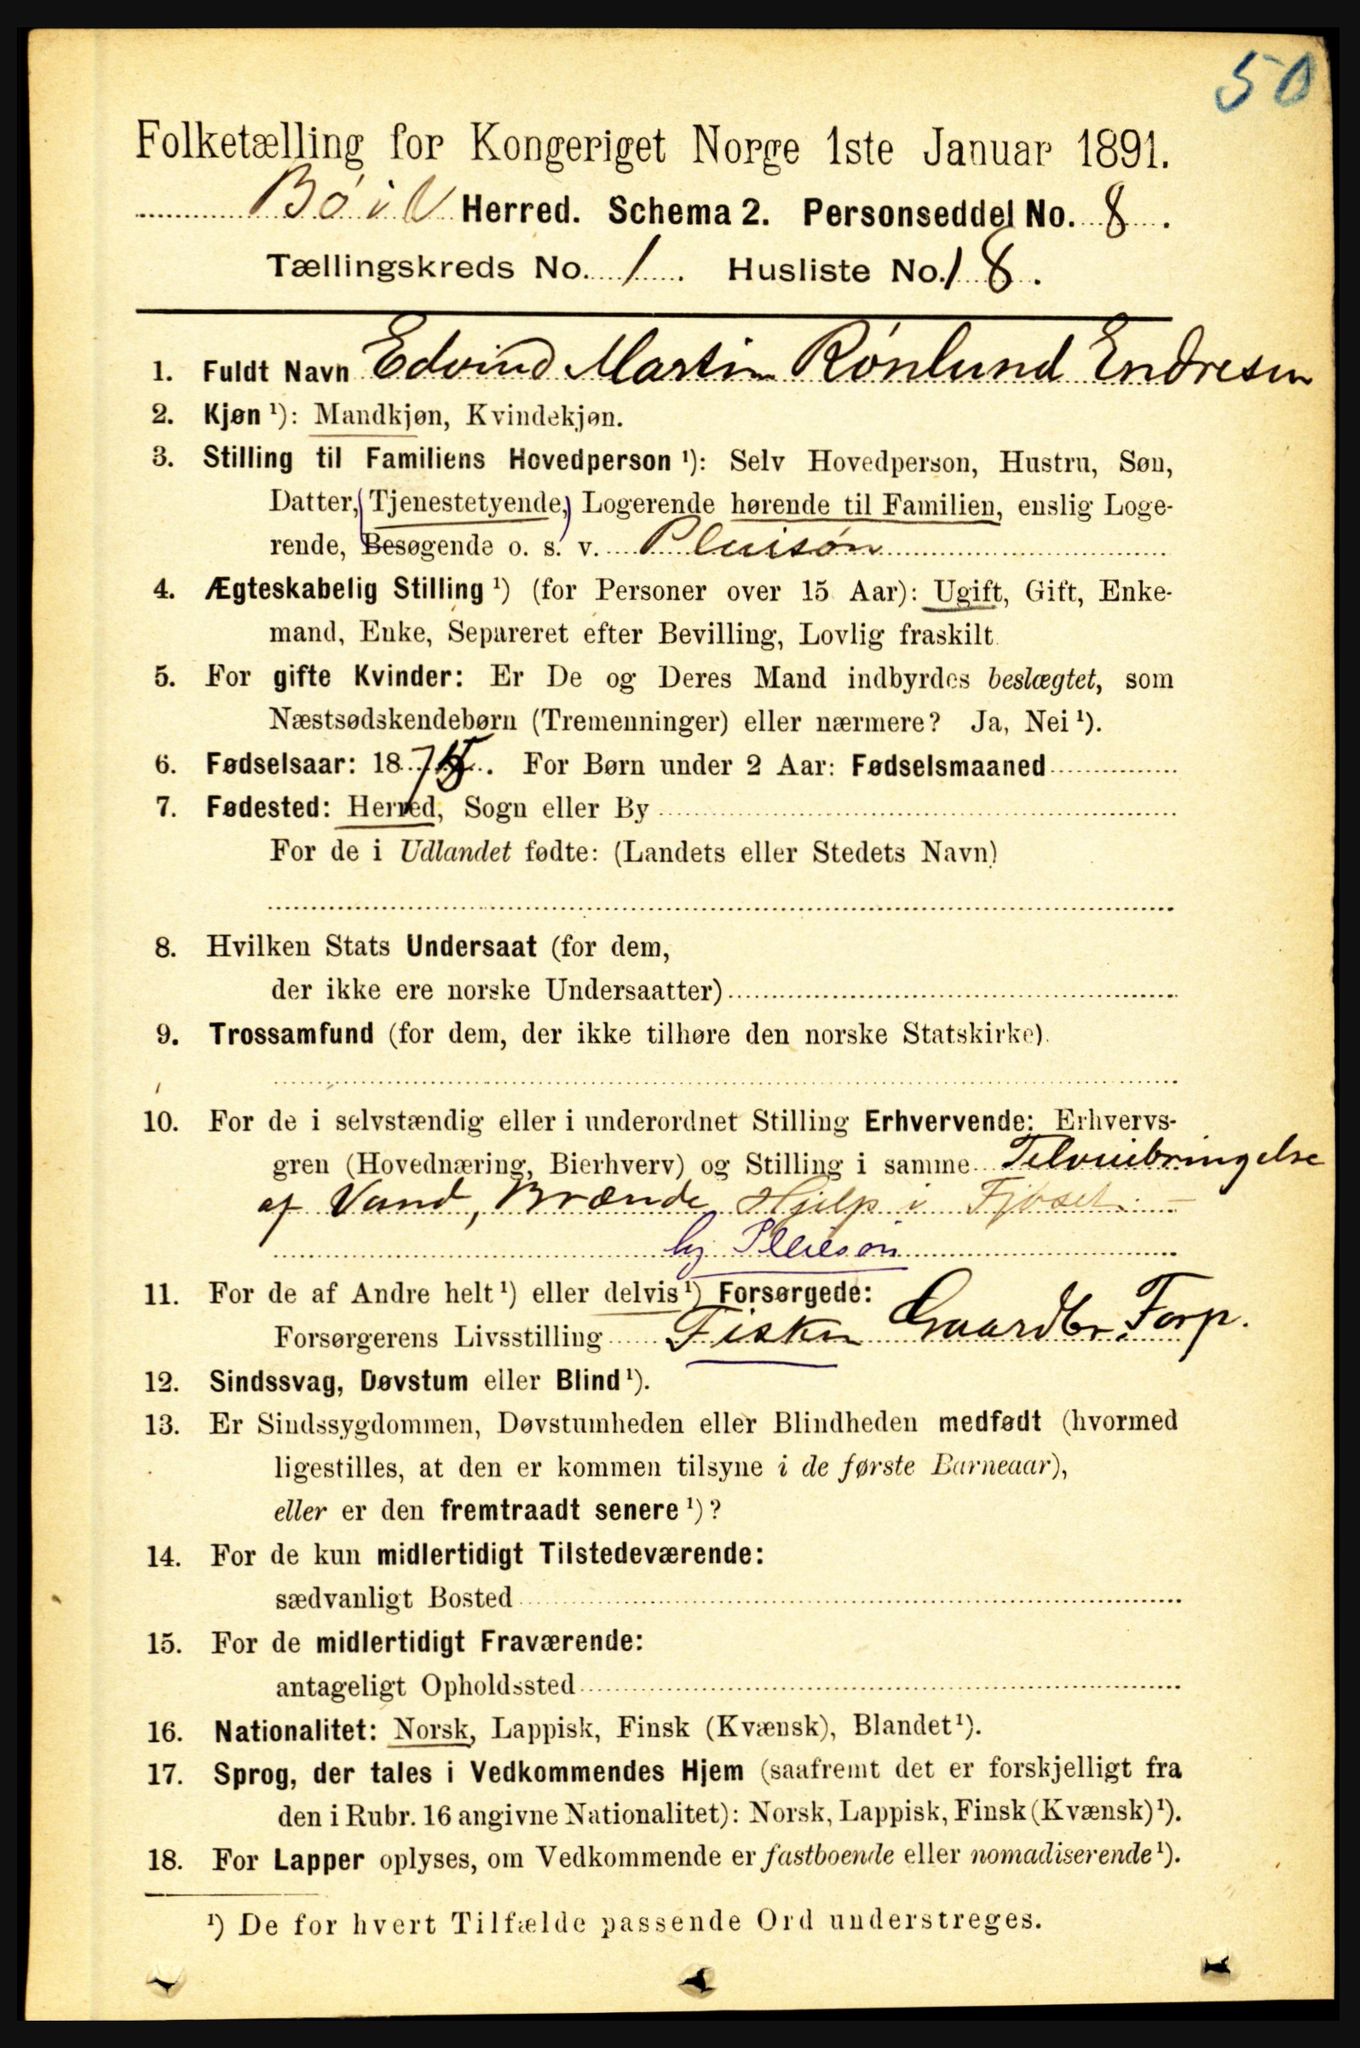 50
Folketælling for Kongeriget Norge 1ste Januar 1891.
Bø i V Herred. Schema 2. Personseddel No. 8.
Tællingskreds No. 1. Husliste No. 18.
1. Fuldt Navn Edvind Martin Rønlund Endresen
2. Kjøn ¹): Mandkjøn, Kvindekjøn.
3. Stilling til Familiens Hovedperson ¹): Selv Hovedperson, Hustru, Søn,
Datter, (Tjenestetyende,) Logerende hørende til Familien, enslig Loge-
rende, Besøgende o. s. v. Pleiesøn
4. Ægteskabelig Stilling ¹) (for Personer over 15 Aar): Ugift, Gift, Enke-
mand, Enke, Separeret efter Bevilling, Lovlig fraskilt
5. For gifte Kvinder: Er De og Deres Mand indbyrdes beslægtet, som
Næstsødskendebørn (Tremenninger) eller nærmere? Ja, Nei ¹).
6. Fødselsaar: 187. For Børn under 2 Aar: Fødselsmaaned
7. Fødested: Herred, Sogn eller By
For de i Udlandet fødte: (Landets eller Stedets Navn)
8. Hvilken Stats Undersaat (for dem,
der ikke ere norske Undersaatter)
9. Trossamfund (for dem, der ikke tilhøre den norske Statskirke).
10. For de i selvstændig eller i underordnet Stilling Erhvervende: Erhvervs-
gren (Hovednæring, Bierhverv) og Stilling i samme Tilveiebringelse
af Vand, Brænde, Hjelp i Fjøset. -
Pleiesøn
11. For de af Andre helt ¹) eller delvis ¹) Forsørgede:
Forsørgerens Livsstilling Fisker Gaardbr. Forp.
12. Sindssvag, Døvstum eller Blind ¹).
13. Er Sindssygdommen, Døvstumheden eller Blindheden medfødt (hvormed
ligestilles, at den er kommen tilsyne i de første Barneaar),
eller er den fremtraadt senere ¹)?
14. For de kun midlertidigt Tilstedeværende:
sædvanligt Bosted
15. For de midlertidigt Fraværende:
antageligt Opholdssted
16. Nationalitet: Norsk, Lappisk, Finsk (Kvænsk), Blandet ¹).
17. Sprog, der tales i Vedkommendes Hjem (saafremt det er forskjelligt fra
den i Rubr. 16 angivne Nationalitet): Norsk, Lappisk, Finsk (Kvænsk) ¹).
18. For Lapper oplyses, om Vedkommende er fastboende eller nomadiserende ¹).
¹) De for hvert Tilfælde passende Ord understreges.